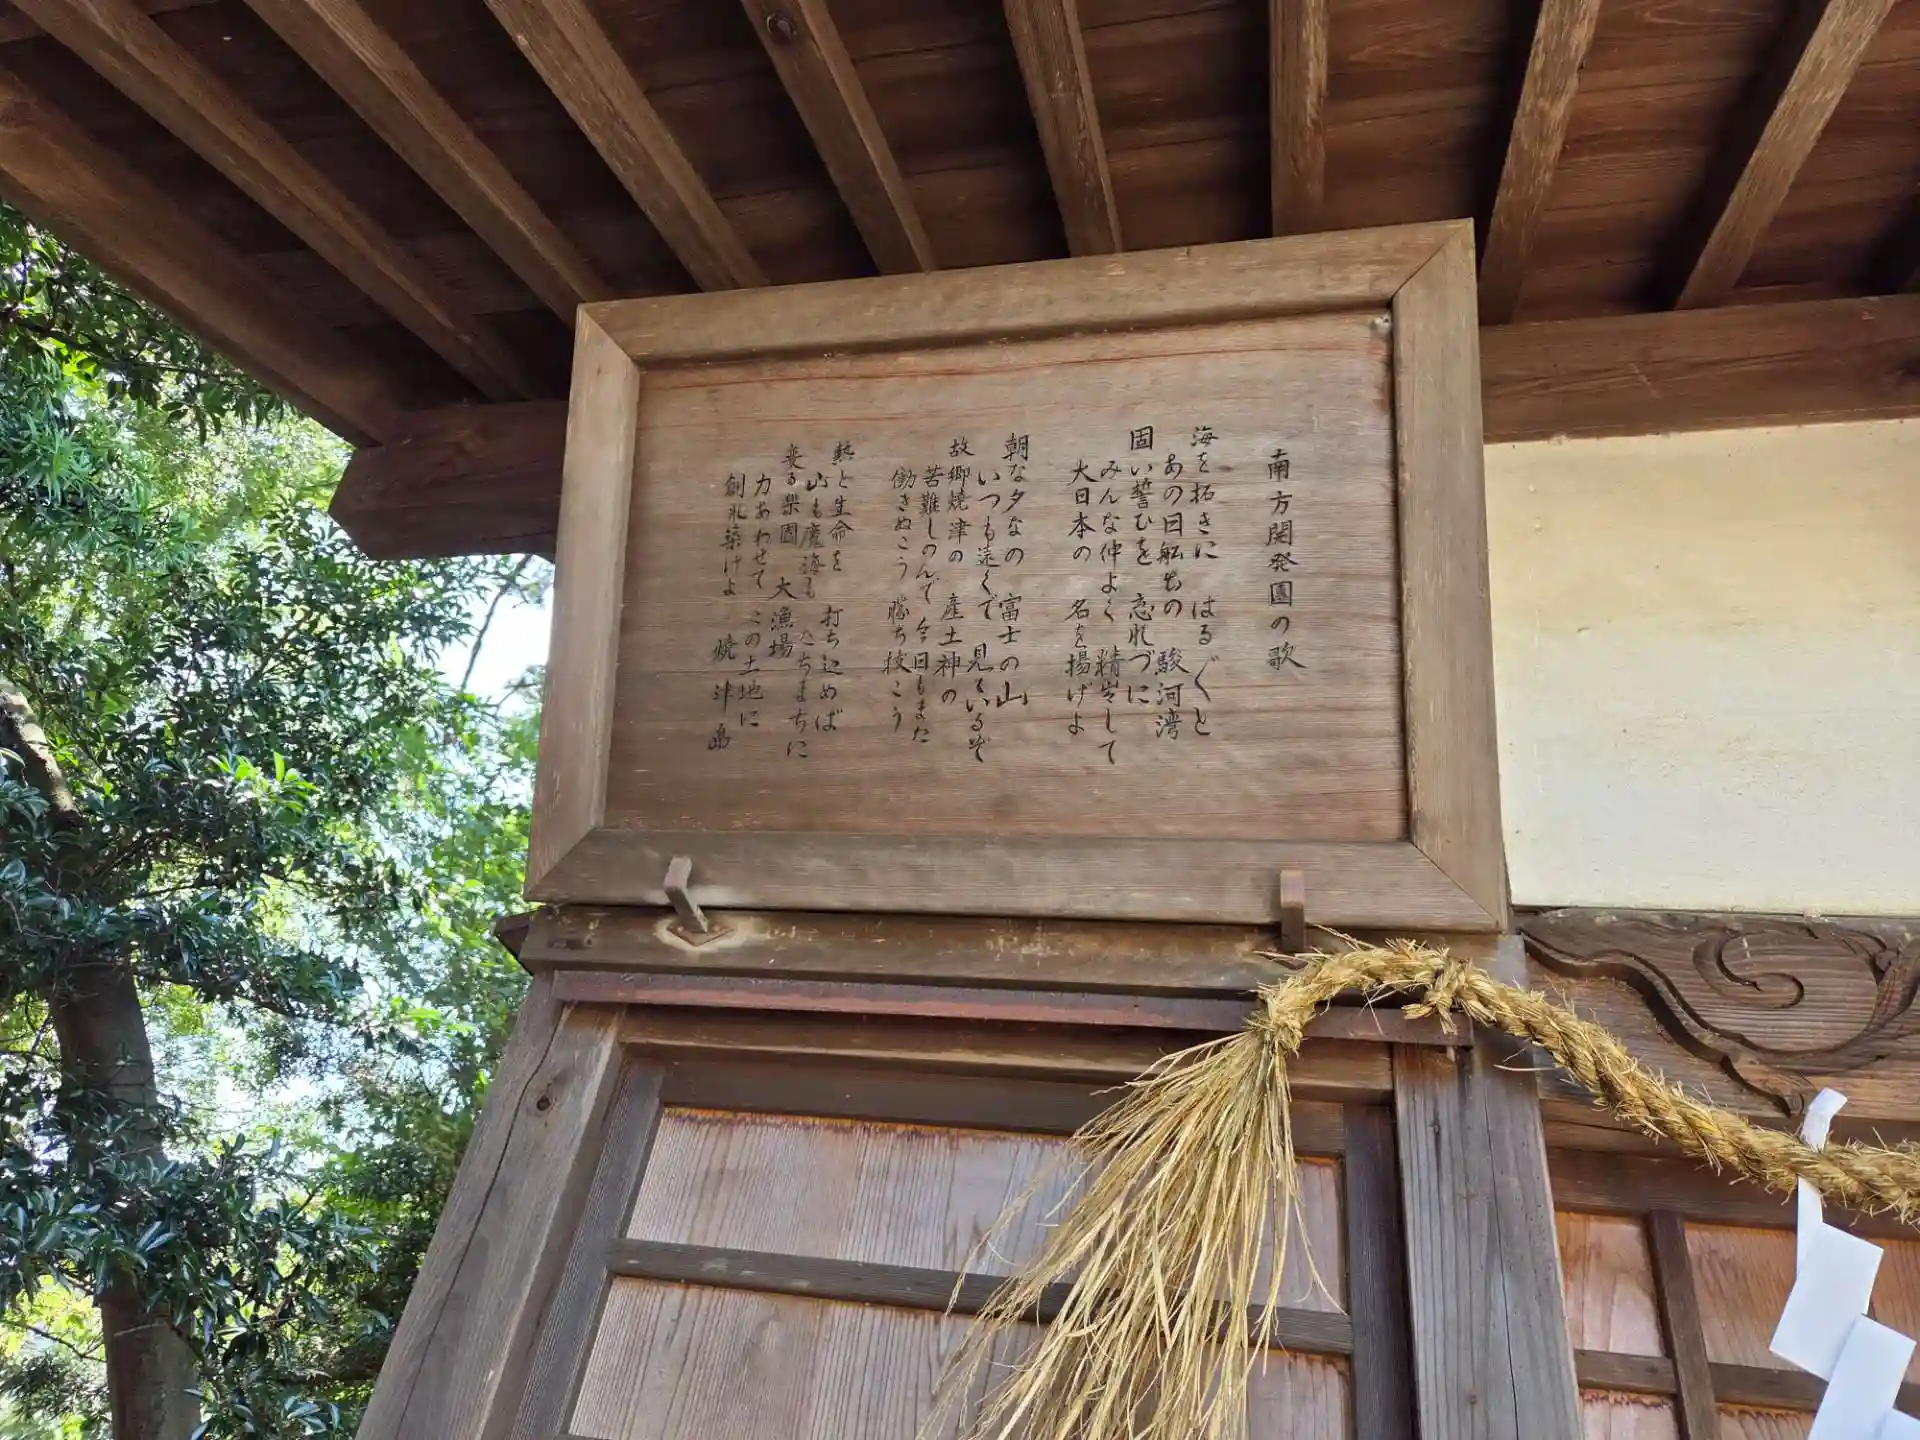 南方開発團の歌
海を拓きに はる〴〵と
あの日船出の 駿河湾
固い誓ひを 忘れづに
みんな仲よく 精出して
大日本の 名を揚げよ
朝な夕なの 富士の山
いつも遠くで 見ているぞ
故郷焼津の 産土神の
苦難しのんで 今日もまた
働きぬこう 勝ち抜こう
熱と生命を 打ち込めば
山も魔海も たちまちに
来る楽園 大漁場
力あわせて この土地に
創れ築けよ 焼津島